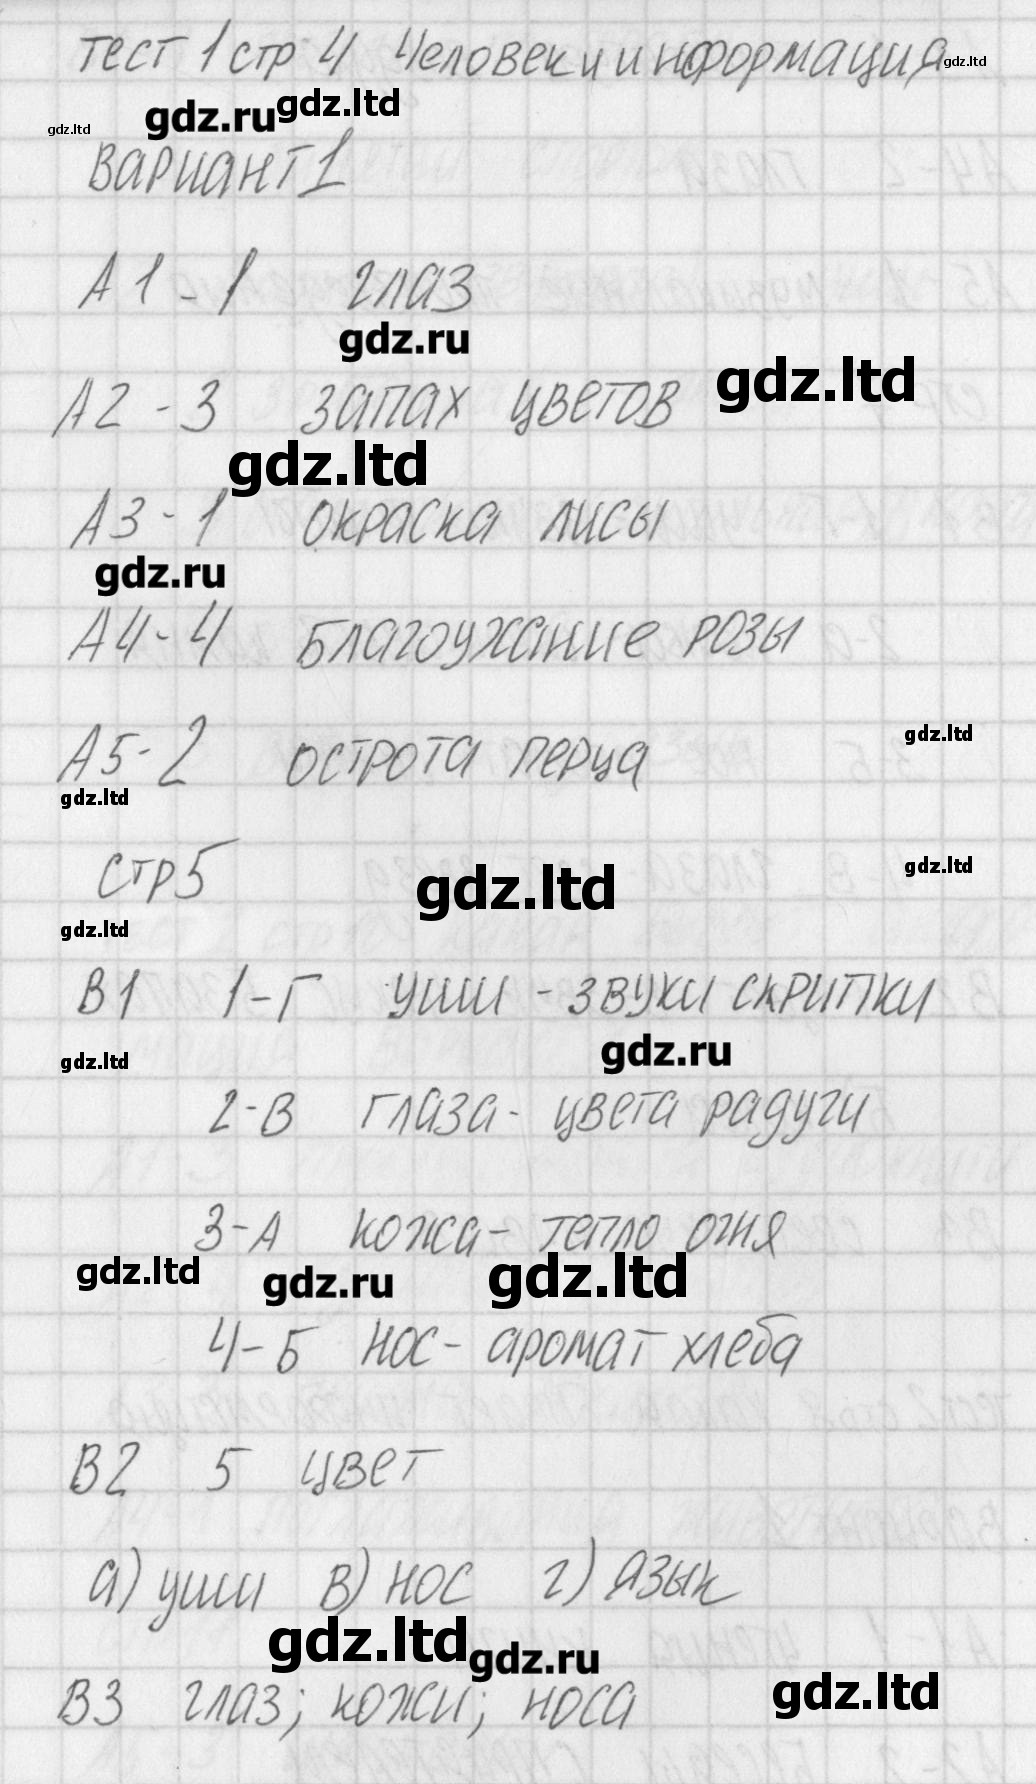 тест 1 стр 4 Человек и информация
gdz.ltd
gdz.ru gdz.ltd
gdz.ltd
Вариант 1
А1-1 глаз
gdz.ru
gdz.ltd
А2-3 запах цветов
gdz.ltd
А3-1 окраска лисы
gdz.ru
А4-4 Благоухание розы
gdz.ltd
А5-2 острота перца
gdz.ltd
стр 5
gdz.ltd
gdz.ltd
gdz.ltd
В1 1-Г уши - звуки скрипки
gdz.ru
gdz.ltd
2-В глаза - цвета радуги
3-А кожа - тепло огня
gdz.ltd gdz.ru gdz.ltd
4-Б нос - аромат хлеба
В2 5 цвет
а) уши в) нос г) язык
gdz.ltd gdz.ru
gdz.ltd
В3 глаз; кожи; носа